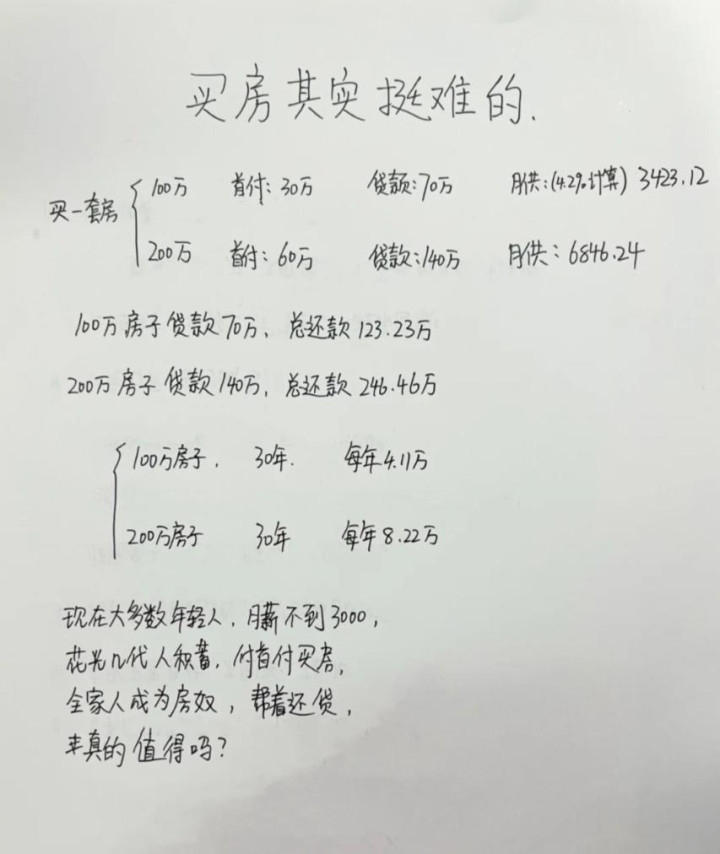 买房其实挺难的.
买一套房
100万 首付:30万 贷款:70万 月供:(4.2%计算) 3423.12
200万 首付:60万 贷款:140万 月供:6846.24
100万房子贷款70万, 总还款123.23万
200万房子贷款140万, 总还款246.46万
100万房子. 30年. 每年4.11万
200万房子 30年 每年8.22万
现在大多数年轻人, 月薪不到3000,
花光几代人积蓄, 付首付买房,
全家人成为房奴, 帮着还贷,
真的值得吗?